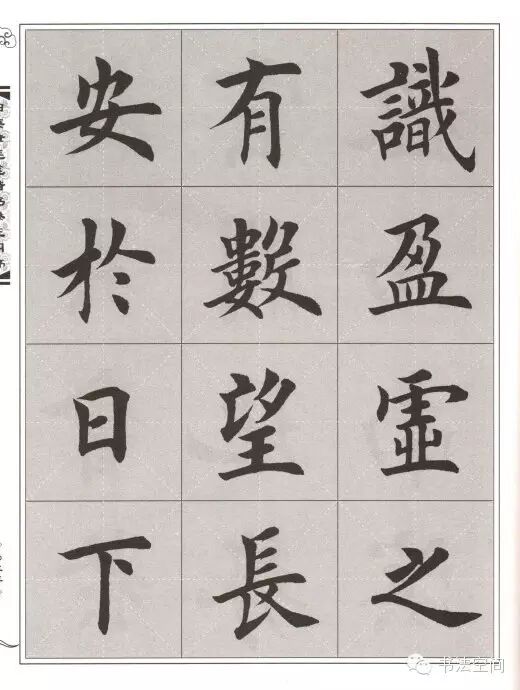 識盈虛之
有數望長
安於日下
书法空间